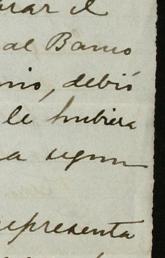 rar el
al Banco
nio, debió
le hubiera
a segun
representa